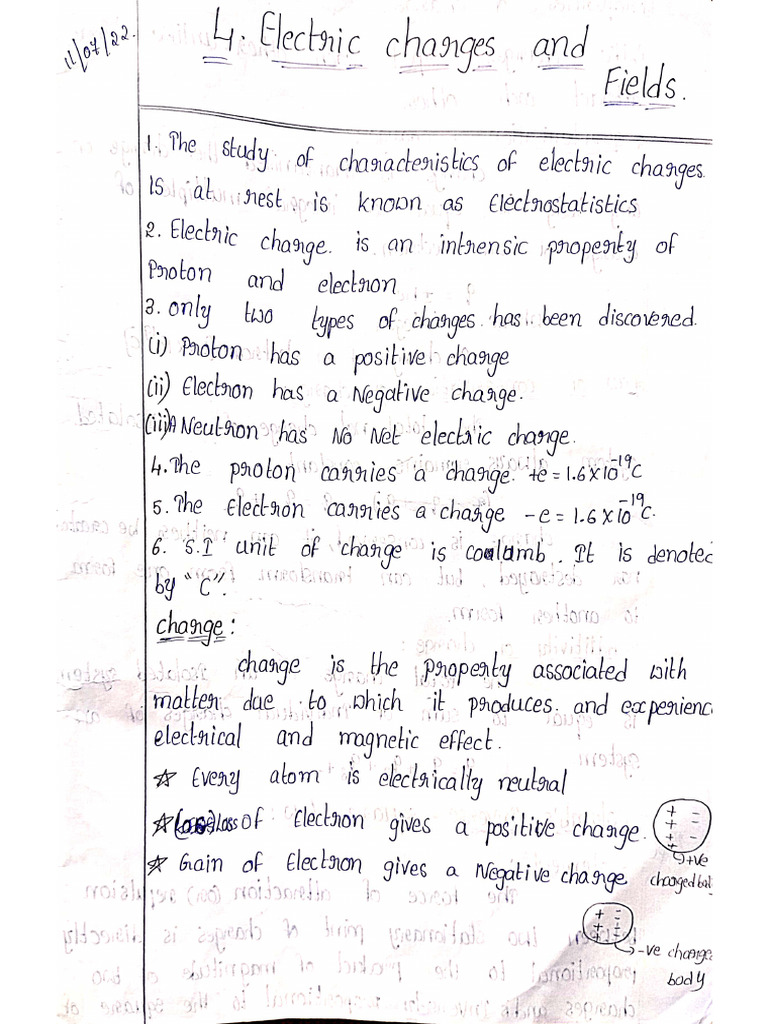 11/07/22.
4. Electric charges and
Fields.
1. The study of characteristics of electric charges
IS at rest is known as Electrostatistics
2. Electric charge is an intrensic property of
Proton and electron
3. only two types of charges has been discovered.
(i) Proton has a positive charge
(ii) Electron has a Negative charge.
(iii) A Neutron has No Net electric charge.
4. The proton carries a charge +e = 1.6 × 10⁻¹⁹ C
5. The Electron carries a charge -e = 1.6 × 10⁻¹⁹ C.
6. S.I unit of charge is coulamb. It is denoted
by "C".
Charge:
charge is the property associated with
matter due to which it produces and experienc
electrical and magnetic effect.
☆ Every atom is electrically neutral
☆ Loss of Electron gives a positive charge.
☆ Gain of Electron gives a Negative charge
+ve
charged
-ve charge
body